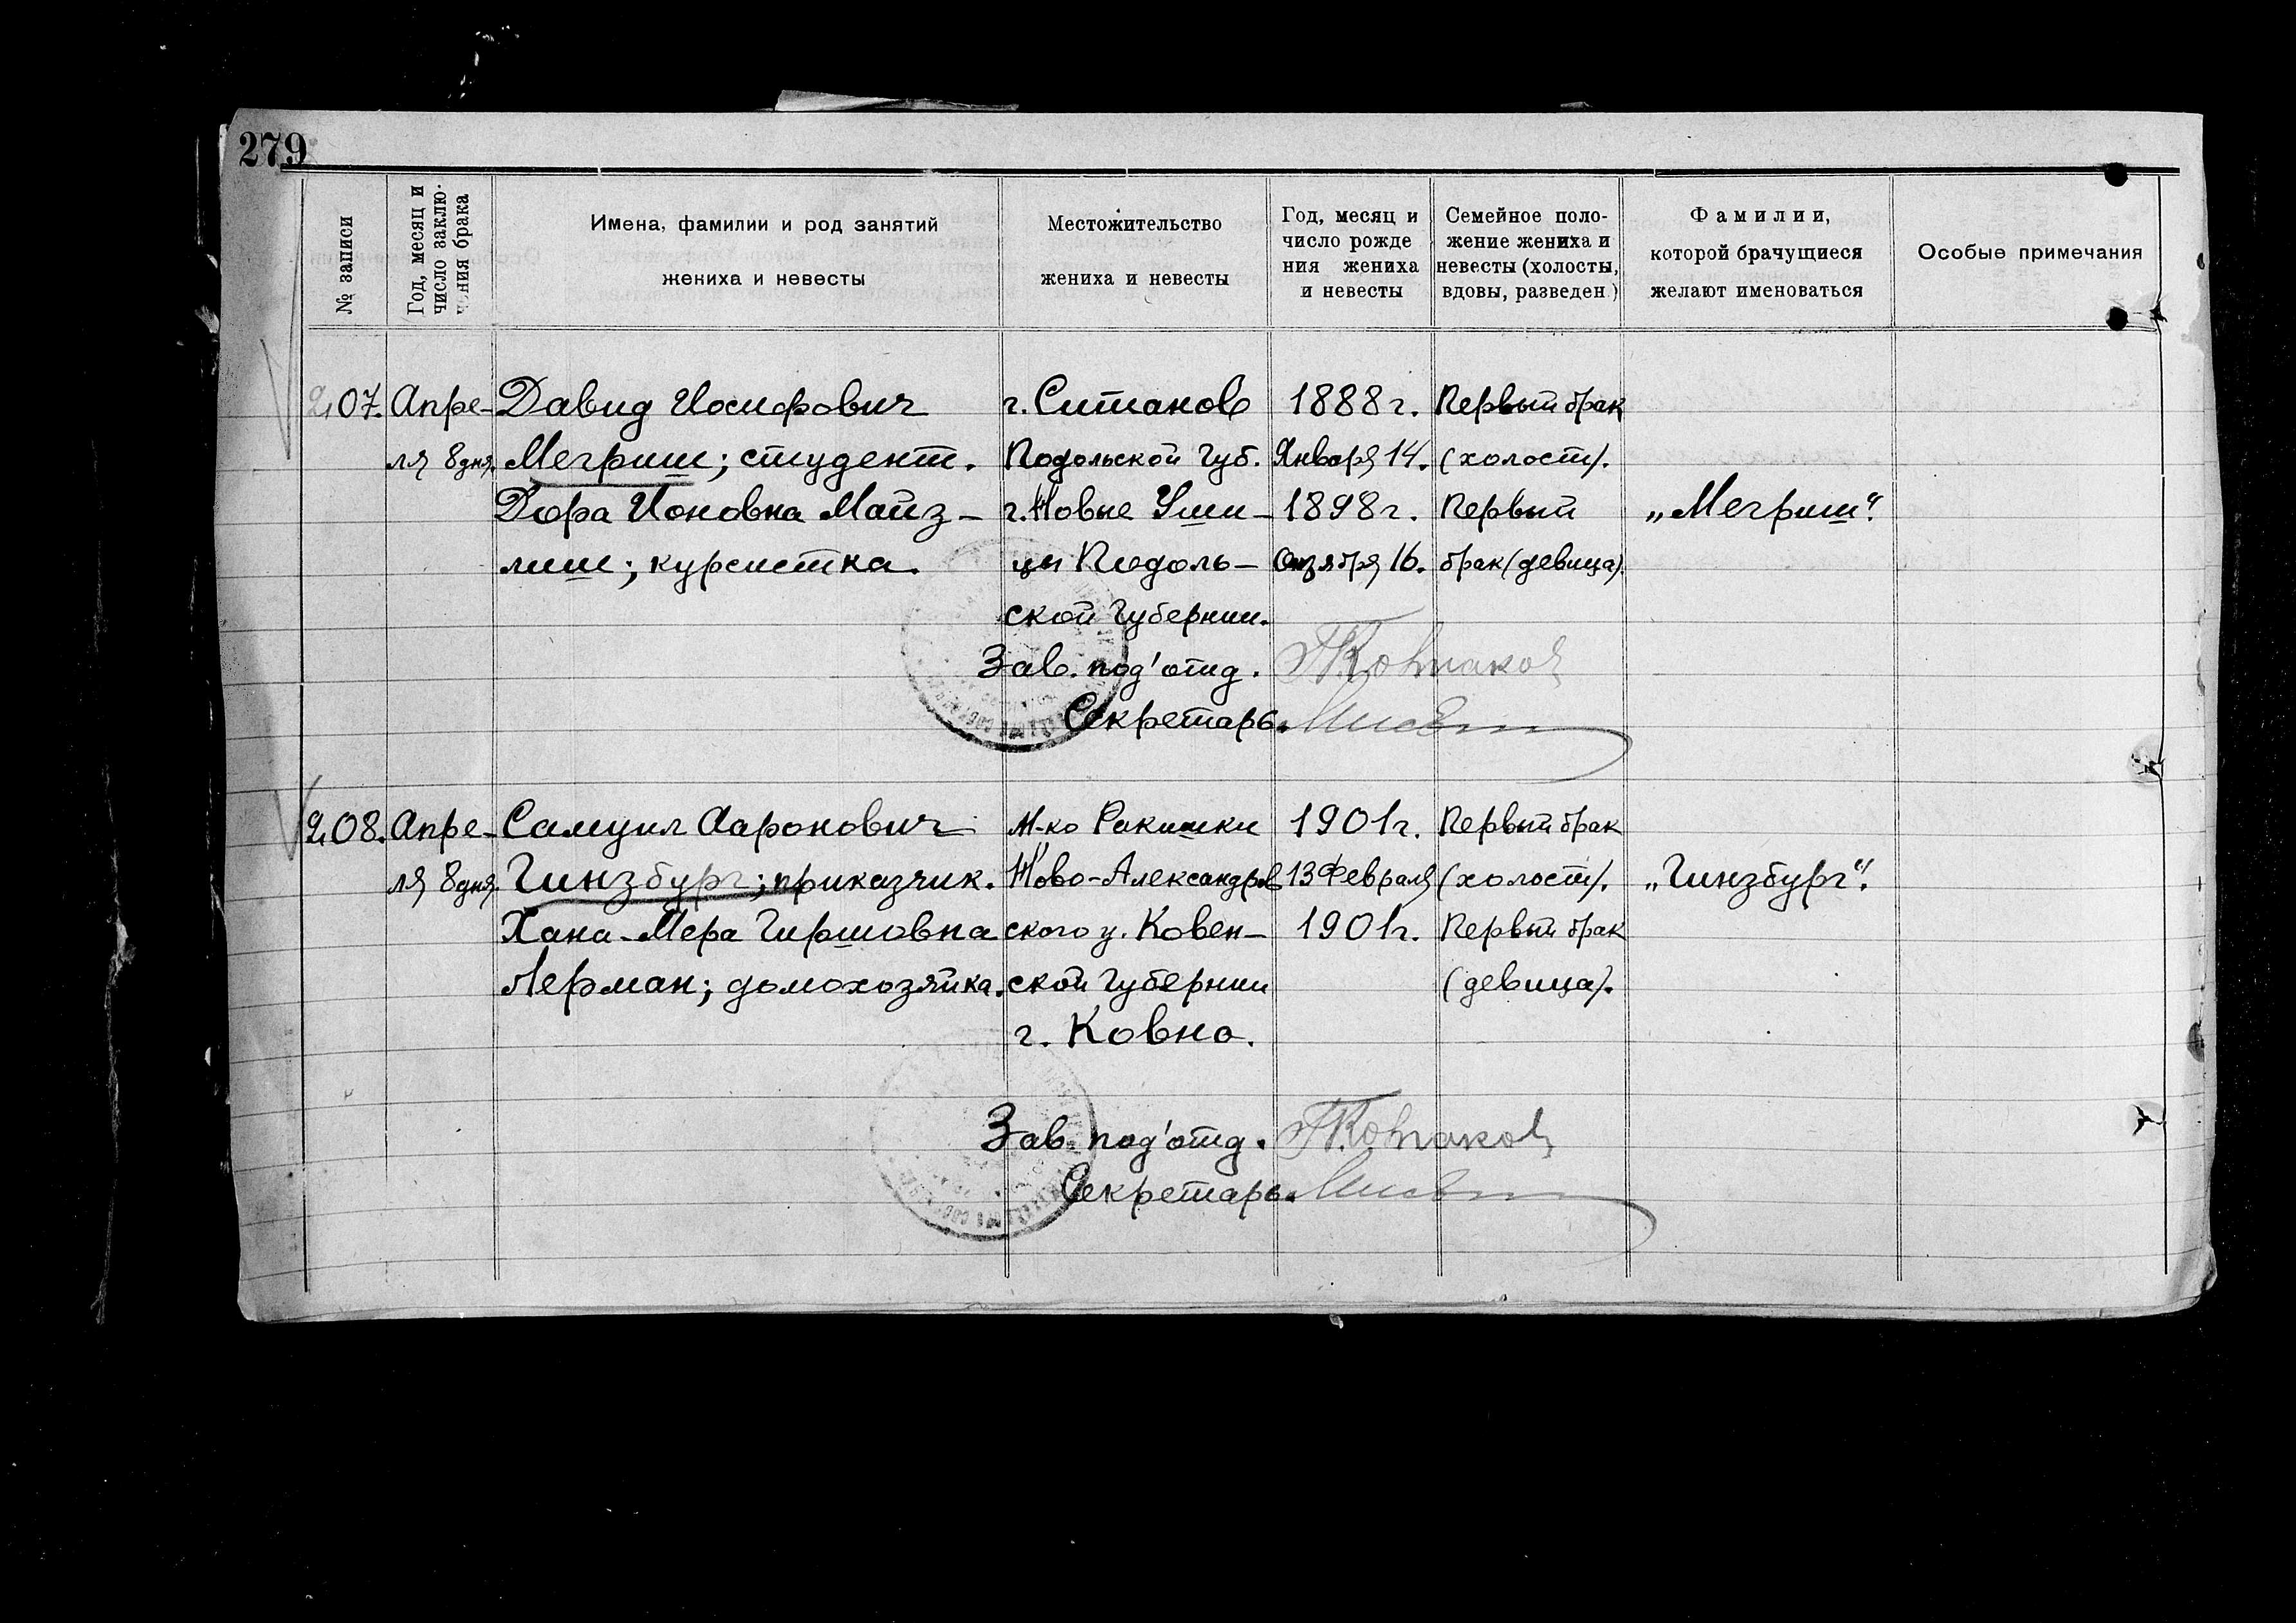 279
№ записи
Год, месяц и
число заклю-
чения брака
Имена, фамилии и род занятий
жениха и невесты
Местожительство
жениха и невесты
Год, месяц и
число рожде
ния жениха
и невесты
Семейное поло-
жение жениха и
невесты (холосты,
вдовы, разведен.)
Фамилии,
которой брачущиеся
желают именоваться
Особые примечания
207. Апре- Давид Иосифович г. Ситанов 1888 г. Первый брак
ля 8 дня. Мегриш; студент. Подольской Губ. Января 14. (холост).
Дора Ионовна Майз- г. Новые Уши- 1898 г. Первый „Мегриш“.
лиш; курсистка. цы Подоль- Октября 16. брак (девица).
ской Губернии.
Зав. под'отд.
Секретарь.
208. Апре- Самуил Ааронович м-ко Ракишки 1901 г. Первый брак
ля 8 дня. Гинзбург; приказчик. Ново-Александров 13 Февраля (холост). „Гинзбург“.
Хана-Мера Гиршовна ского у. Ковен- 1901 г. Первый брак
Лерман; домохозяйка. ской Губернии (девица).
г. Ковно.
Зав. под'отд.
Секретарь.